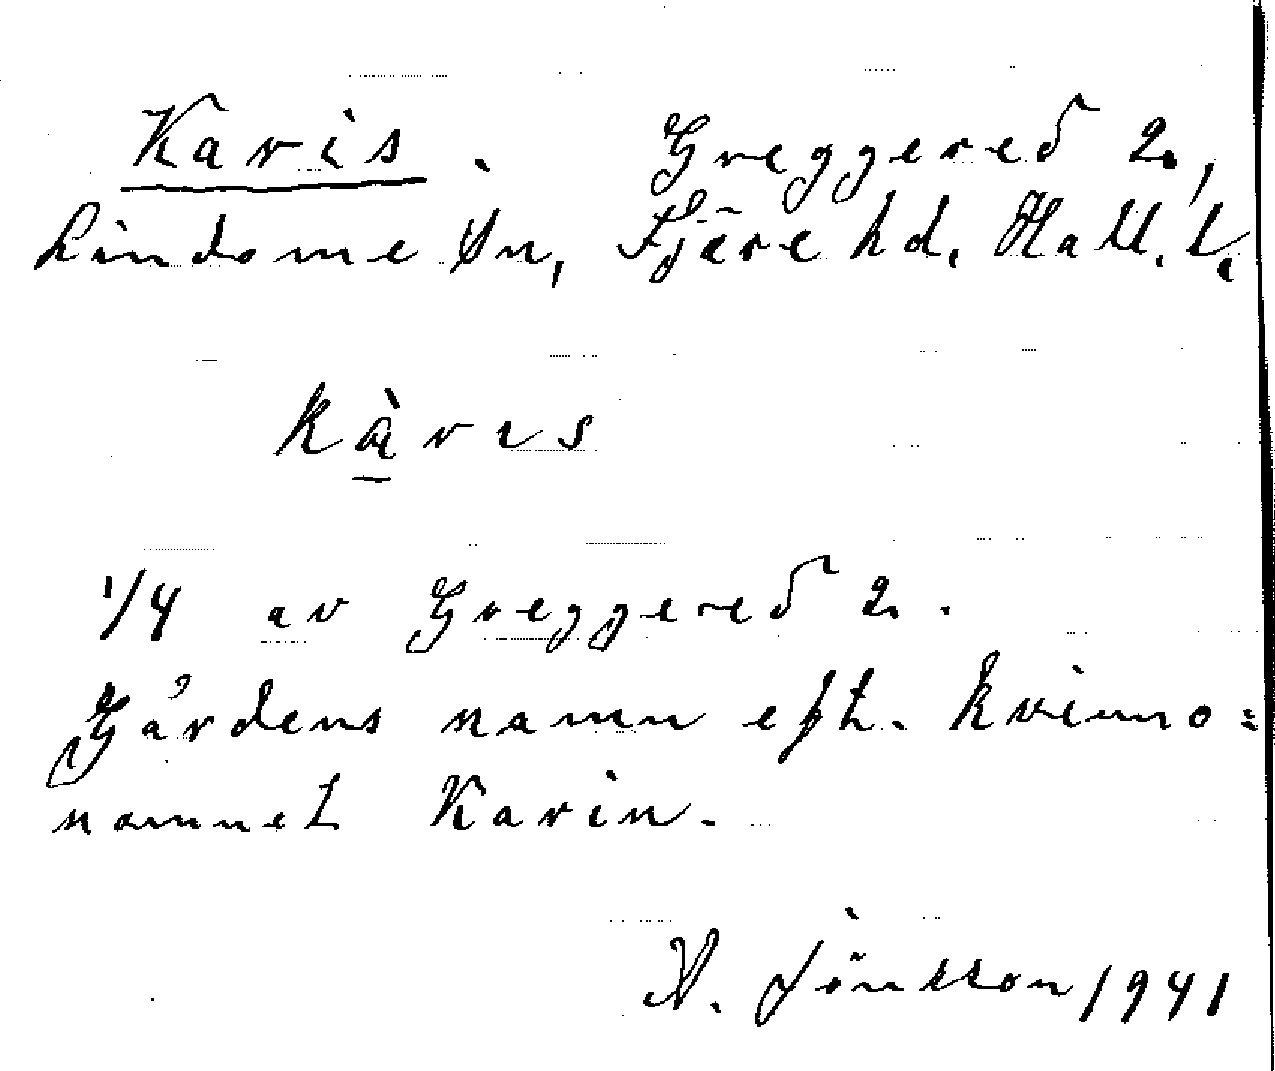 Karis. Greggered 2,
Lindome sn, Fjäre hd. Hall. l.
kàrıs
1/4 av Greggered 2.
Gårdens namn eft. kvinno=
namnet Karin.
A. Jönsson 1941